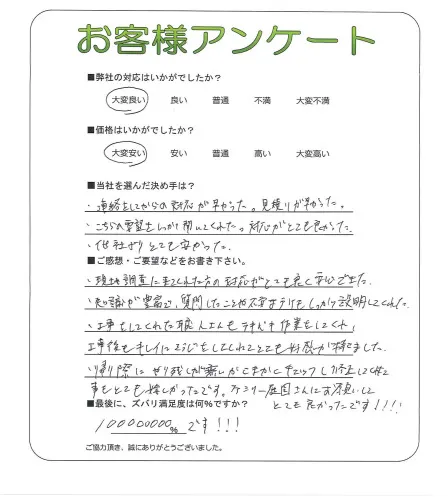 お客様アンケート
■弊社の対応はいかがでしたか？
大変良い 良い 普通 不満 大変不満
■価格はいかがでしたか？
大変安い 安い 普通 高い 大変高い
■当社を選んだ決め手は？
・連絡をしてからの対応が早かった。見積りが早かった。
・こちらの要望をしっかり聞いてくれた。対応がとても良かった。
・他社よりとても安かった。
■ご感想・ご要望などをお書き下さい。
・現地調査に来てくれた方の対応がとても良く安心できた。
・知識が豊富で、質問したことや不安をしっかり説明してくれた。
・工事をしてくれた職人さんもテキパキ作業をしてくれ
工事後もキレイにそうじをしてくれてとても好感が持てました。
・帰り際にやり残しが無いかこまかくチェックし修正してくれた
事もとても嬉しかったです。ファミリー庭園さんにお願いして
■最後に、ズバリ満足度は何％ですか？
とても良かったです！！！！
100000000％です！！！
ご協力頂き、誠にありがとうございました。